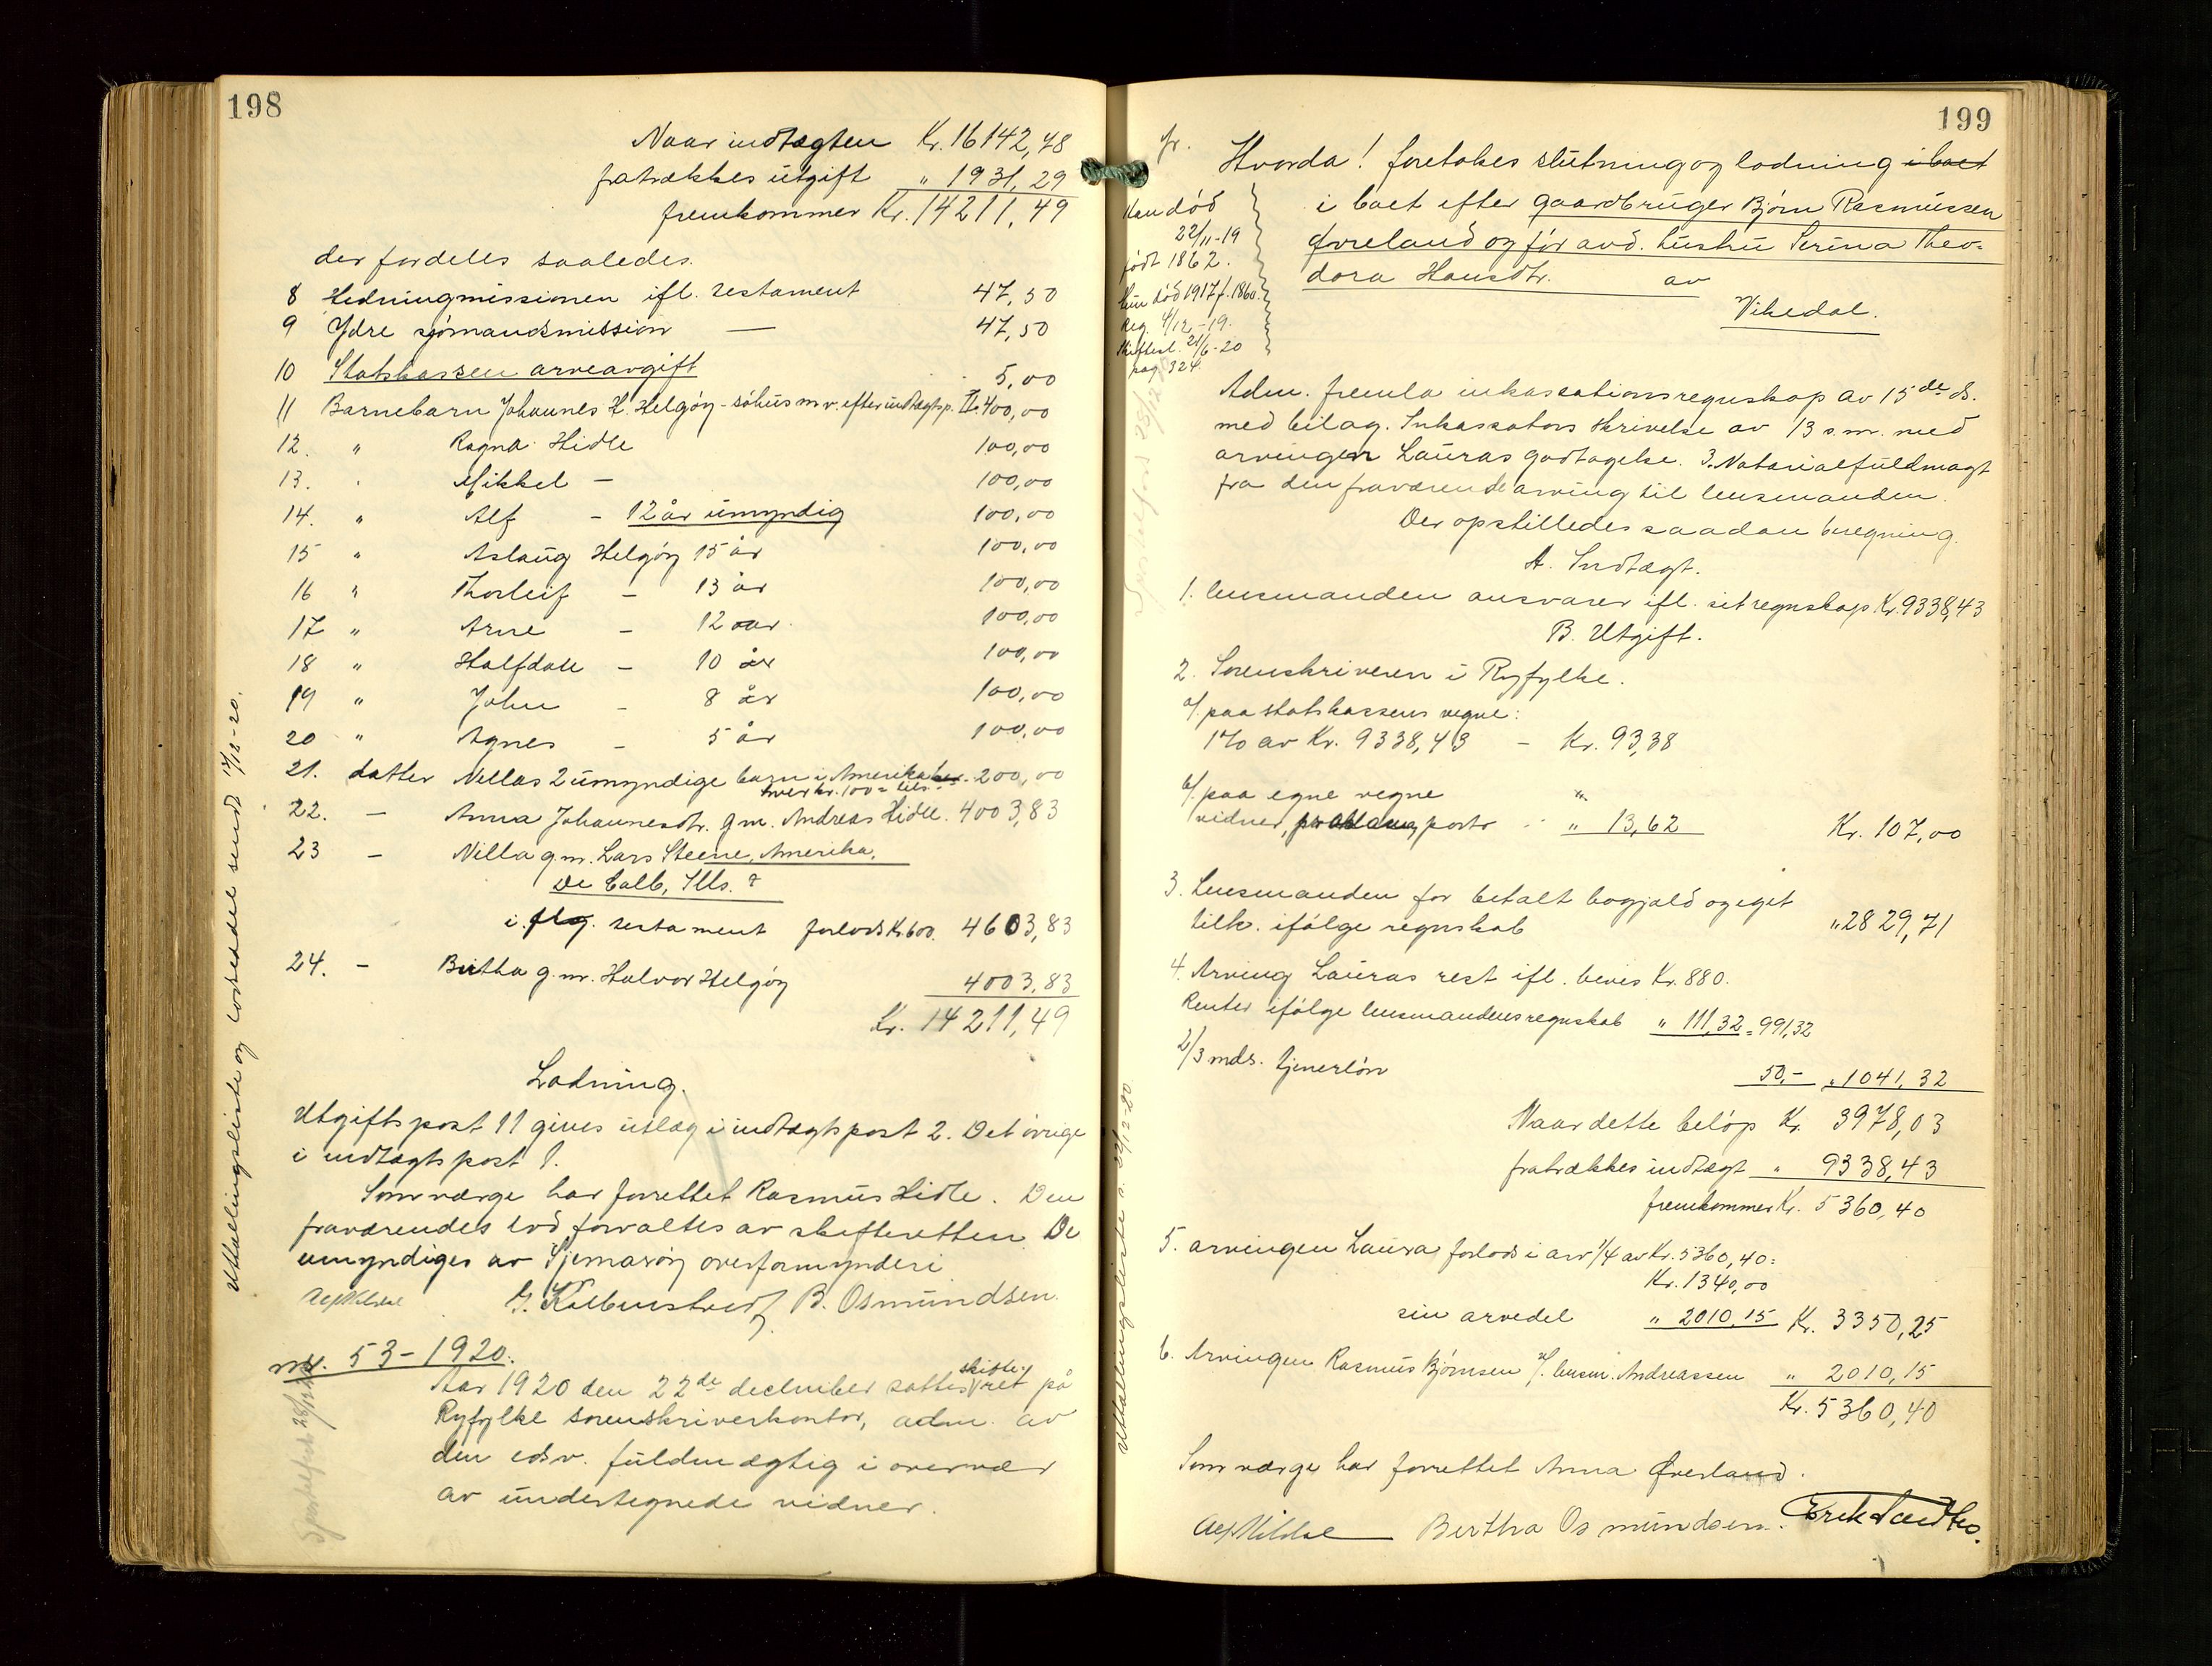 198
Naar indtægten Kr. 16142,78
fratrækkes utgift " 1931,29
fremkommer Kr. 14211,49
der fordeles saaledes.
8 Hedningmissionen ifl. testament 47,50
9 Ydre sjømandsmission — 47,50
10 Statskassen arveavgift 5,00
11 Barnebarn Johannes H. Helgøy - søhus m.v. efter indtægtsp. II. 400,00
12. " Ragna Hidle 100,00
13. " Mikkel — 100,00
14. " Alf — 12 år umyndig 100,00
15 " Aslaug Helgøy 15 år 100,00
16 " Thorleif — 13 år 100,00
17 " Arne — 12 aar 100,00
18 " Halfdan — 10 år 100,00
19 " John — 8 år 100,00
20 " Agnes — 5 år 100,00
21. datter Nillas 2 umyndige barn i Amerika 200,00
hver kr. 100 = tils.
22. — Anna Johannesdtr. g.m. Andreas Hidle. 4003,83
23 — Nilla g.m. Lars Steene, Amerika,
De Calb, Ills. ?
i flg. testament forlods Kr. 600. 4603,83
24. — Birtha g.m. Halvor Helgøy 4003,83
Kr. 14211,49
Lodning.
Utgiftspost 11 gives utlæg i indtægtspost 2. Det øvrige
i indtægtspost 1.
Som værge har forrettet Rasmus Hidle. Den
fraværendes lod forvaltes av skifteretten. De
umyndiges av Sjernarøy overformynderi
B. Osmundsen.
Utbetalingsliste og lodseddel sendt 17/12-20.
nr. 53-1920.
Aar 1920 den 22de december sattes skifteret på
Ryfylke sorenskriverkontor, adm. av
den edsv. fuldmægtig i overvær
av undertegnede vidner.
199
Hvorda! foretokes slutning og lodning i boet
i boet efter gaardbruger Bjørn Rasmussen
Øvreland og før avd. hustru Serina Theo-
dora Hansdtr. av
Vikedal.
Han død
22/11-19
født 1862.
Hun død 1917 f. 1860.
Reg. 4/12-19.
Skiftesl. 21/6-20
pag. 324.
Adm. fremla inkassationsregnskap av 15de ds.
med bilag. Inkassators skrivelse av 13 s.m. med
arvingen Lauras godtagelse. 3. Notarialfuldmagt
fra den fraværende arving til lensmanden.
Der opstilledes saadan beregning.
A. Indtægt.
1. lensmanden ansvarer ifl. sit regnskap Kr. 9338,43
B. Utgift.
2. Sorenskriveren i Ryfylke.
a/. paa statskassens vegne:
1% av Kr. 9338,43 — Kr. 93,38
b/. paa egne vegne "
vidner, porto " 13,62 Kr. 107,00
3. Lensmanden for betalt bogjæld og eget
tilk. ifølge regnskab " 2829,71
4. Arving Lauras rest ifl. bevis Kr. 880.
Renter ifølge lensmandens regnskab " 111,32 = 991,32
2/3 mds. tjenerløn 50,- " 1041,32
Naar dette beløp Kr. 3978,03
fratrækkes indtægt " 9338,43
fremkommer Kr. 5360,40
5. arvingen Laura forlods i arv 1/4 av Kr. 5360,40 =
Kr. 1340,00
sin arvedel " 2010,15 Kr. 3350,25
6. Arvingen Rasmus Bjørnsen v/. lensm. Andreassen " 2010,15
Kr. 5360,40
Som værge har forrettet Anna Øverland.
Bertha Osmundsen.